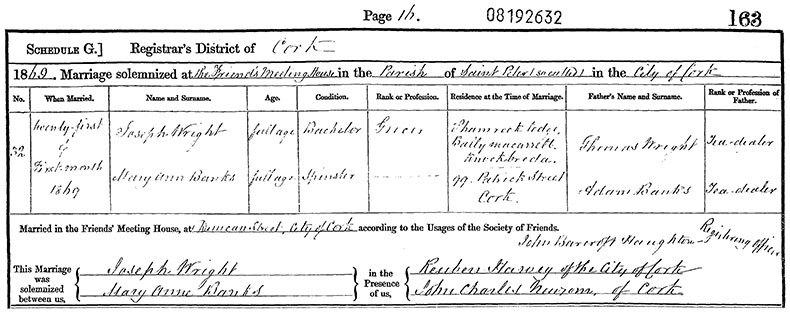 Page 16. 08192632 163
SCHEDULE G.] Registrar's District of Cork
1869. Marriage solemnized at the Friends Meeting House in the Parish of Saint Peter (so called) in the City of Cork
No. When Married. Name and Surname. Age. Condition. Rank or Profession. Residence at the Time of Marriage. Father's Name and Surname. Rank or Profession of Father.
32 twenty-first of Joseph Wright full age Bachelor Grocer Shamrock Lodge, Ballymacarrett Knockbreda. Thomas Wright Tea-dealer
1869 Mary Ann Banks full age Spinster 99. Patrick Street Cork. Adam Banks Tea-dealer
Married in the Friends' Meeting House, at Duncan Street, City of Cork according to the Usages of the Society of Friends.
John Barcroft Haughton Registering Officer
This Marriage was solemnized between us, Joseph Wright in the Presence of us, Reuben Harvey of the City of Cork
Mary Anne Banks John Charles Newsom, of Cork